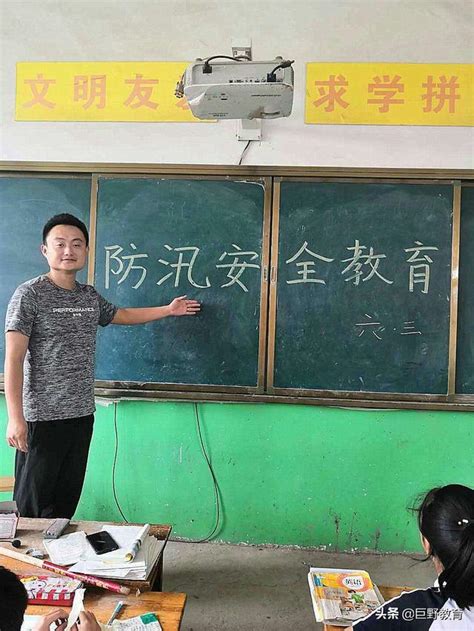 文明友
求学拼
防汛安全教育
六.三
PERFORMANCE
英语
头条 @巨野教育